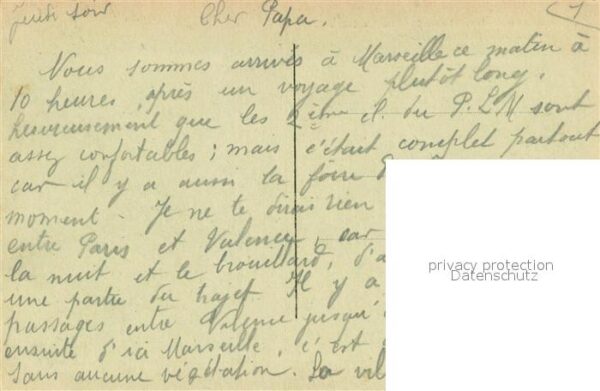 Jeudi soir
Cher Papa.
1
Nous sommes arrivés à Marseille ce matin à
10 heures, après un voyage plutôt long,
heureusement que les 2ème cl. du P.L.M sont
assez confortables ; mais c'était complet partout
car il y a aussi la foire
moment. Je ne te dirais rien
entre Paris et Valence, car
la nuit et le brouillard, d'a
une partie du trajet. Il y a
passages entre Valence jusqu'
ensuite d'ici Marseille, c'est
sans aucune végétation. La vil
privacy protection
Datenschutz